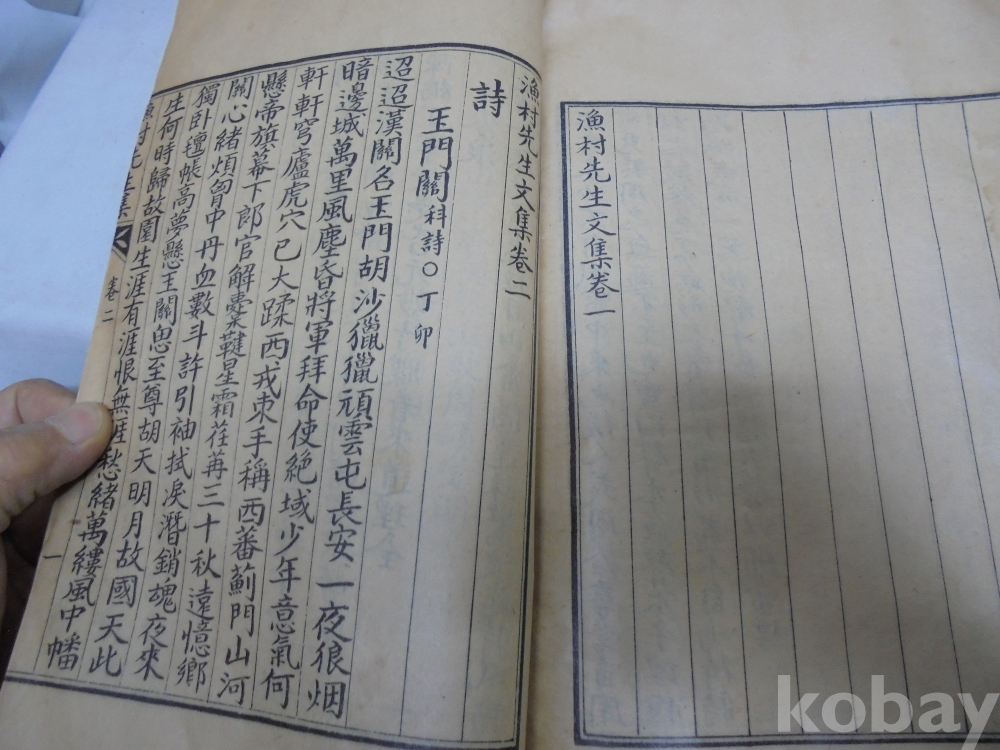 漁村先生文集卷一
漁村先生文集卷二
詩
玉門關科詩○丁卯
迢迢漢關名玉門胡沙獵獵頑雲屯長安一夜狼烟
暗邊城萬里風塵昏將軍拜命使絶域少年意氣何
軒軒穹廬虎穴已大蹂西戎束手稱西蕃薊門山河
懸帝旗幕下郎官解櫜鞬星霜荏苒三十秋遠憶鄉
關心緖煩胷中丹血數斗許引袖拭淚潛銷魂夜來
獨臥氊帳高夢懸玉關思至尊胡天明月故國天此
生何時歸故園生涯有涯恨無涯愁緖萬縷風中幡
漁村先生文集 卷二 一
kobay